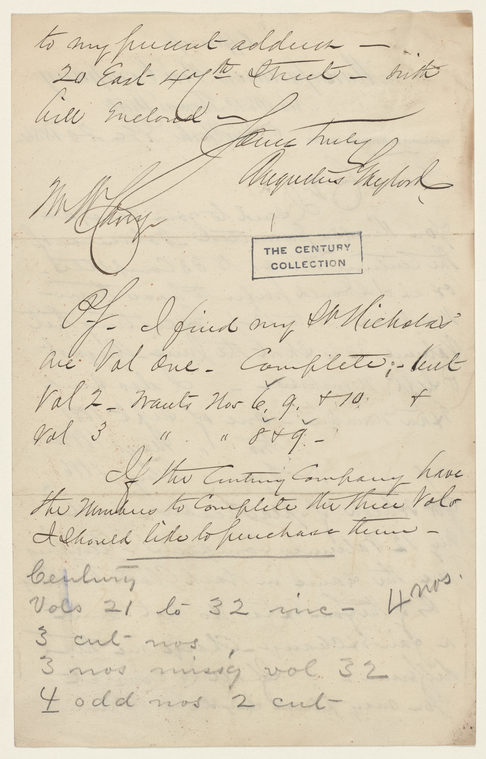 to my present address —
20 East 49th Street — with
bill enclosed —
Yours truly
Augustus Gaylord
Mr
THE CENTURY
COLLECTION
PS — I find my St Nicholas'
are Vol One — Complete; — but
Vol 2 — Wants Nos 6, 9, & 10 &
Vol 3 " " 8 & 9 —
If the Century Company have
the numbers to complete the three Vols
I should like to purchase them —
Century
Vols 21 to 32 inc — 4 nos.
3 cut nos
3 nos miss'g vol 32
4 odd nos 2 cut